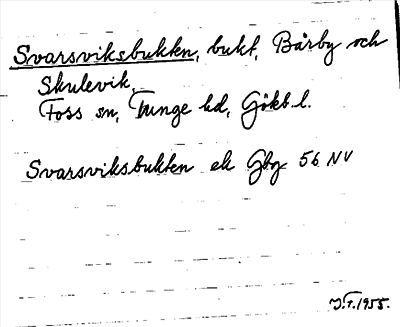 Svarsviksbukten, bukt, Bärby och
Skulevik,
Foss sn, Tunge hd, Gökb. l.
Svarsviksbukten ek Gbg 56 NV
J.T. 1955.